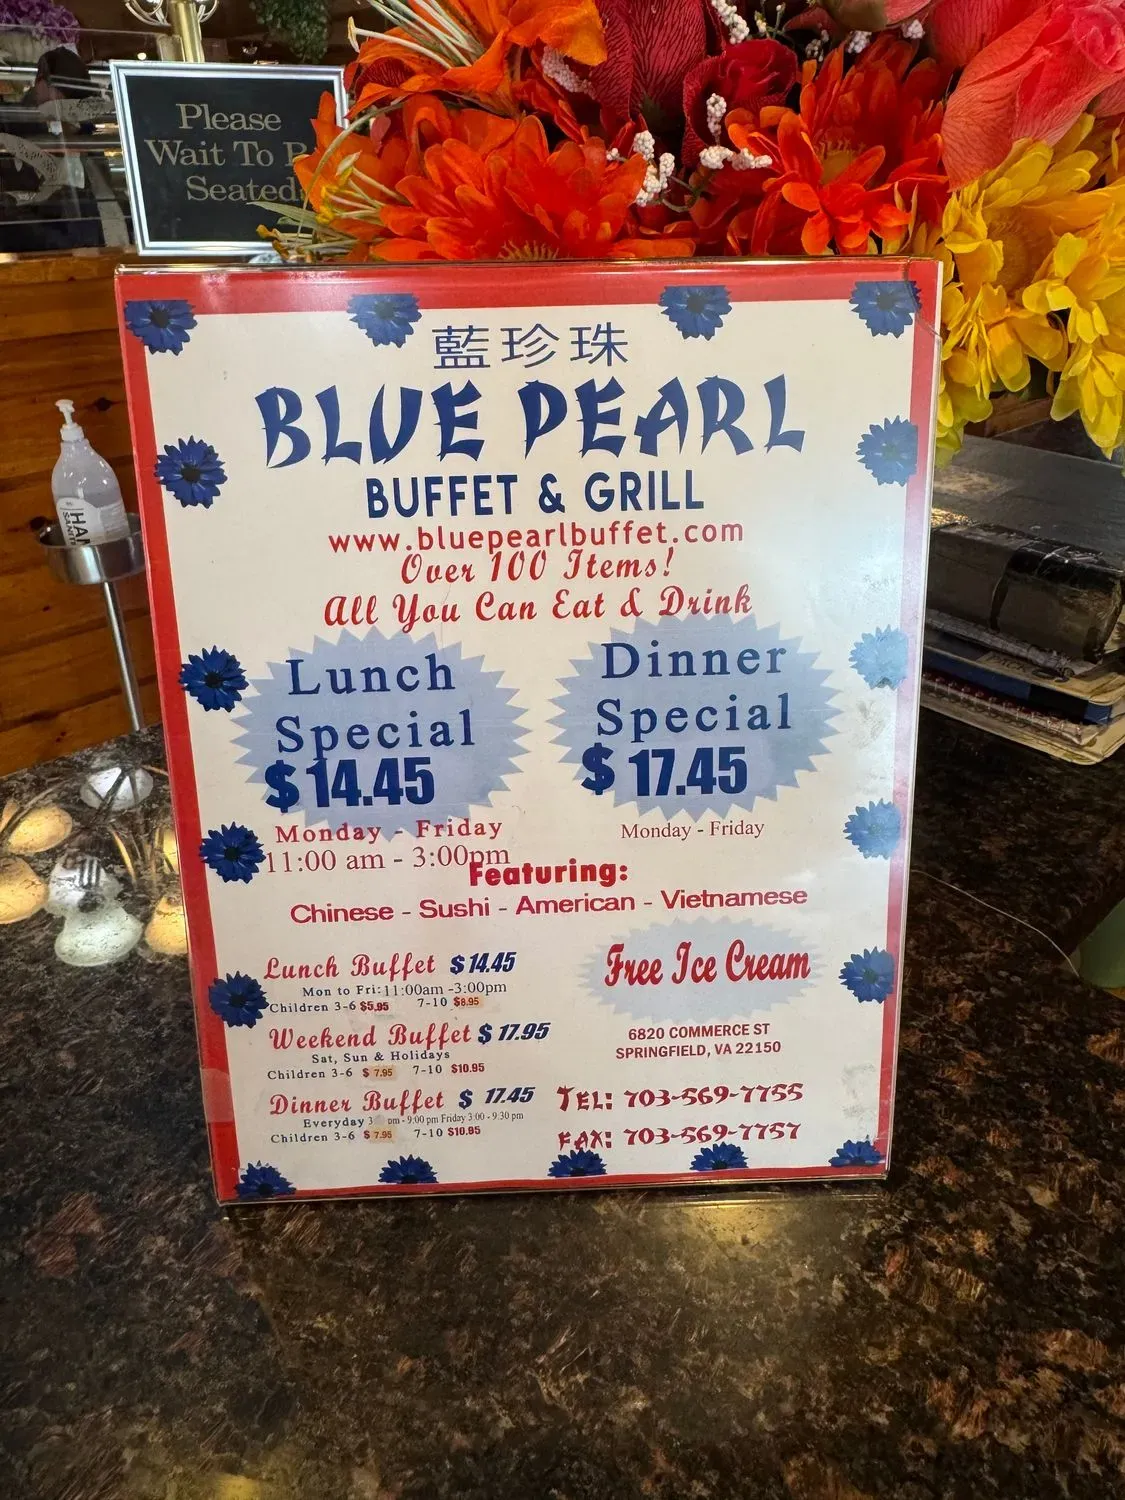 Please
Wait To
Seated
藍珍珠
BLUE PEARL
BUFFET & GRILL
www.bluepearlbuffet.com
Over 100 Items!
All You Can Eat & Drink
Lunch
Special
$14.45
Monday - Friday
11:00 am - 3:00pm
Dinner
Special
$17.45
Monday - Friday
Featuring:
Chinese - Sushi - American - Vietnamese
Lunch Buffet $14.45
Mon to Fri:11:00am -3:00pm
Children 3-6 $5.95 7-10 $8.95
Weekend Buffet $17.95
Sat, Sun & Holidays
Children 3-6 $7.95 7-10 $10.95
Dinner Buffet $17.45
Everyday 3 pm - 9:00 pm Friday 3:00 - 9:30 pm
Children 3-6 $7.95 7-10 $10.95
Free Ice Cream
6820 COMMERCE ST
SPRINGFIELD, VA 22150
TEL: 703-569-7755
FAX: 703-569-7757